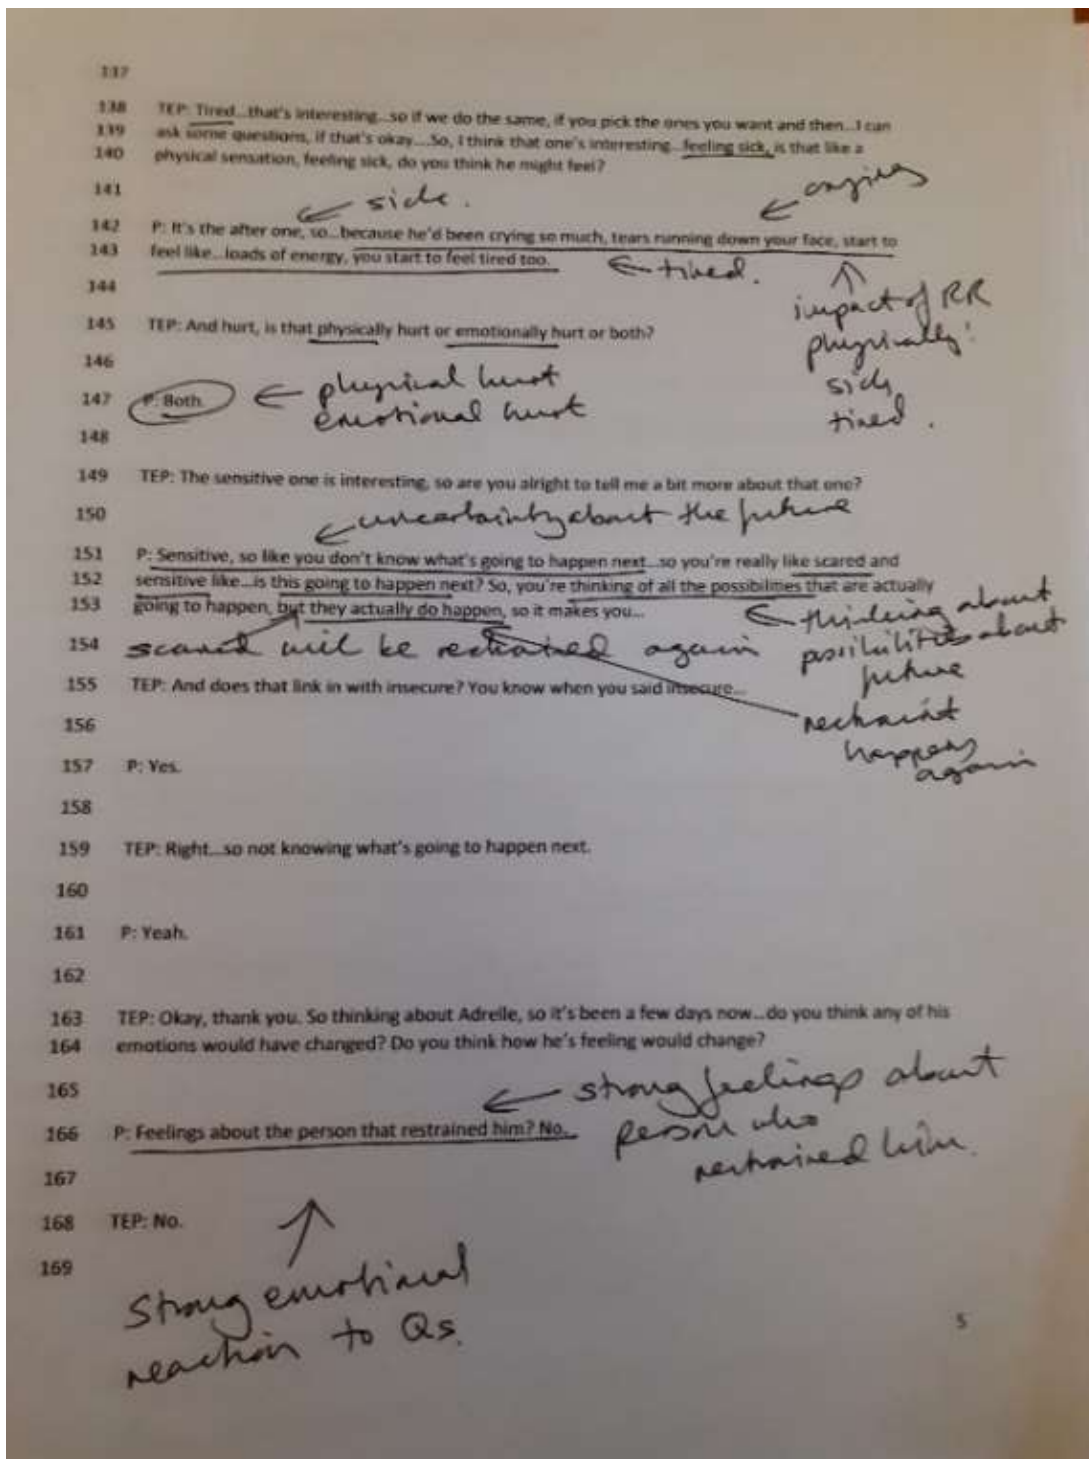 137
138 TEP: Tired...that's interesting...so if we do the same, if you pick the ones you want and then...I can
139 ask some questions, if that's okay....So, I think that one's interesting...feeling sick, is that like a
140 physical sensation, feeling sick, do you think he might feel?
141
← sick.
← crying
142 P: It's the after one, so...because he'd been crying so much, tears running down your face, start to
143 feel like...loads of energy, you start to feel tired too.
← tired.
144
↑
impact of RR
physically!
sick,
tired.
145 TEP: And hurt, is that physically hurt or emotionally hurt or both?
146
147 P: Both.
← physical hurt
emotional hurt
148
149 TEP: The sensitive one is interesting, so are you alright to tell me a bit more about that one?
150
← uncertainty about the future
151 P: Sensitive, so like you don't know what's going to happen next...so you're really like scared and
152 sensitive like...is this going to happen next? So, you're thinking of all the possibilities that are actually
153 going to happen, but they actually do happen, so it makes you...
← thinking about
possibilities about
future
154 scared will be restrained again
155 TEP: And does that link in with insecure? You know when you said insecure...
restraint
happens
again
156
157 P: Yes.
158
159 TEP: Right...so not knowing what's going to happen next.
160
161 P: Yeah.
162
163 TEP: Okay, thank you. So thinking about Adrelle, so it's been a few days now...do you think any of his
164 emotions would have changed? Do you think how he's feeling would change?
165
← strong feelings about
person who
restrained him.
166 P: Feelings about the person that restrained him? No.
167
168 TEP: No.
169
↑
Strong emotional
reaction to Qs.
5